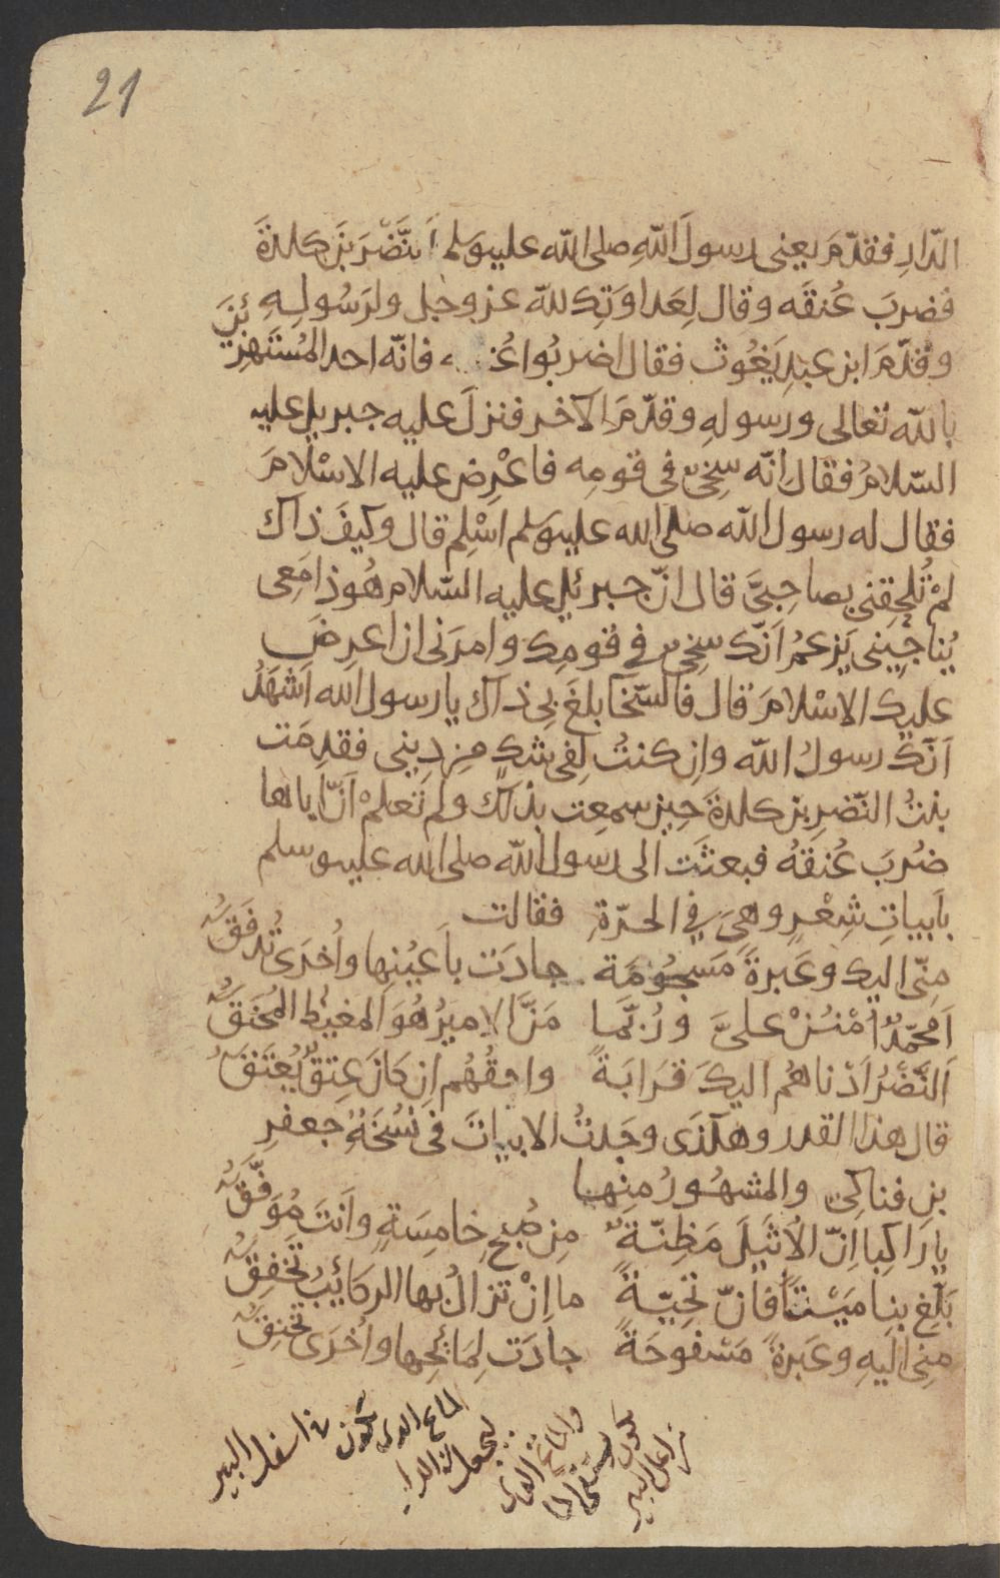 21
الدّارِ فقدّمَ يعنى رسولَ اللّهِ صلى اللّه عليه وسلم النَّضْرَ بنَ كلدةَ
فضربَ عُنقَه وقال لِعَداوَتِك للّه عز وجل ولرَسُولِهِ
وقدّمَ ابن عبدِ يَغُوث فقال اضربُوا فانّه احد المُسْتَهزِئينَ
باللّه تعالى ورسولِهِ وقدّمَ الآخر فنزلَ عليه جبريل عليه
السّلامُ فقال انّه سَخِىّ فى قومِه فاعْرِض عليه الاسْلامَ
فقال له رسول اللّه صلى الله عليه وسلم اسْلِم قال وكيفَ ذاك
لمْ تُلحِقنى بصاحِبىَّ قال انّ جبرئيل عليه السّلام هُوذا مَعِى
يُناجِينى يَزعمُ انّك سَخِىّ فى قومِك وامرَنى ان اعرِضَ
عليك الاسْلامَ قال فالسّخا بلغَ بى ذاك يا رسول الله اشهَدُ
انّك رسولُ اللّه وان كنتُ لفى شكٍ من دِينى فقدِمَت
بنتُ النّضرِ بن كلدةَ حِين سمعت بذلك ولم تعلمْ انّ اباها
ضُربَ عُنقهُ فبعثَت الى رسول اللّه صلى الله عليه وسلم
بأبياتِ شِعْرٍ وهىَ فى الحرّةِ فقالت
مِنّى اليك وعَبرةً مَسجُومَة جادَت بأعيُنِها وأُخرَى تُدفَقُ
اَمُحمّدٌ اُمْنُنْ علىَّ ورُبّما مَنَّ الاميرُ هُوَ المغيظُ المُحنَقُ
اَلنَّضْرُ اَدْناهُم اليكَ قَرابَةً واحقُّهُم ان كانَ عِتقٌ يُعتَقُ
قال هذا القدر وهكذى وجَدتُ الابياتَ فى نُسْخَةِ جعفرِ
بنِ فناكى والمشهُورُ مِنها
يا رَاكِبا انّ الاُثَيلَ مَظِنّةٌ من صُبحِ خامِسَةٍ وأنتَ مُوَفَّقُ
بَلّغ بنِا مَيْتًا فانّ تحِيّةً ما انْ تزالُ بها الركائِبُ تَخفِقُ
مِنى اليهِ وعَبرةً مَسْفوحَةً جادَت لِمائحِها وأُخرَى تَخنِقُ
الماح الذى يكون فى اسفل البير
يجعل فى الدلو
والماتح الذى
يكون يستقى
من اعلى البير